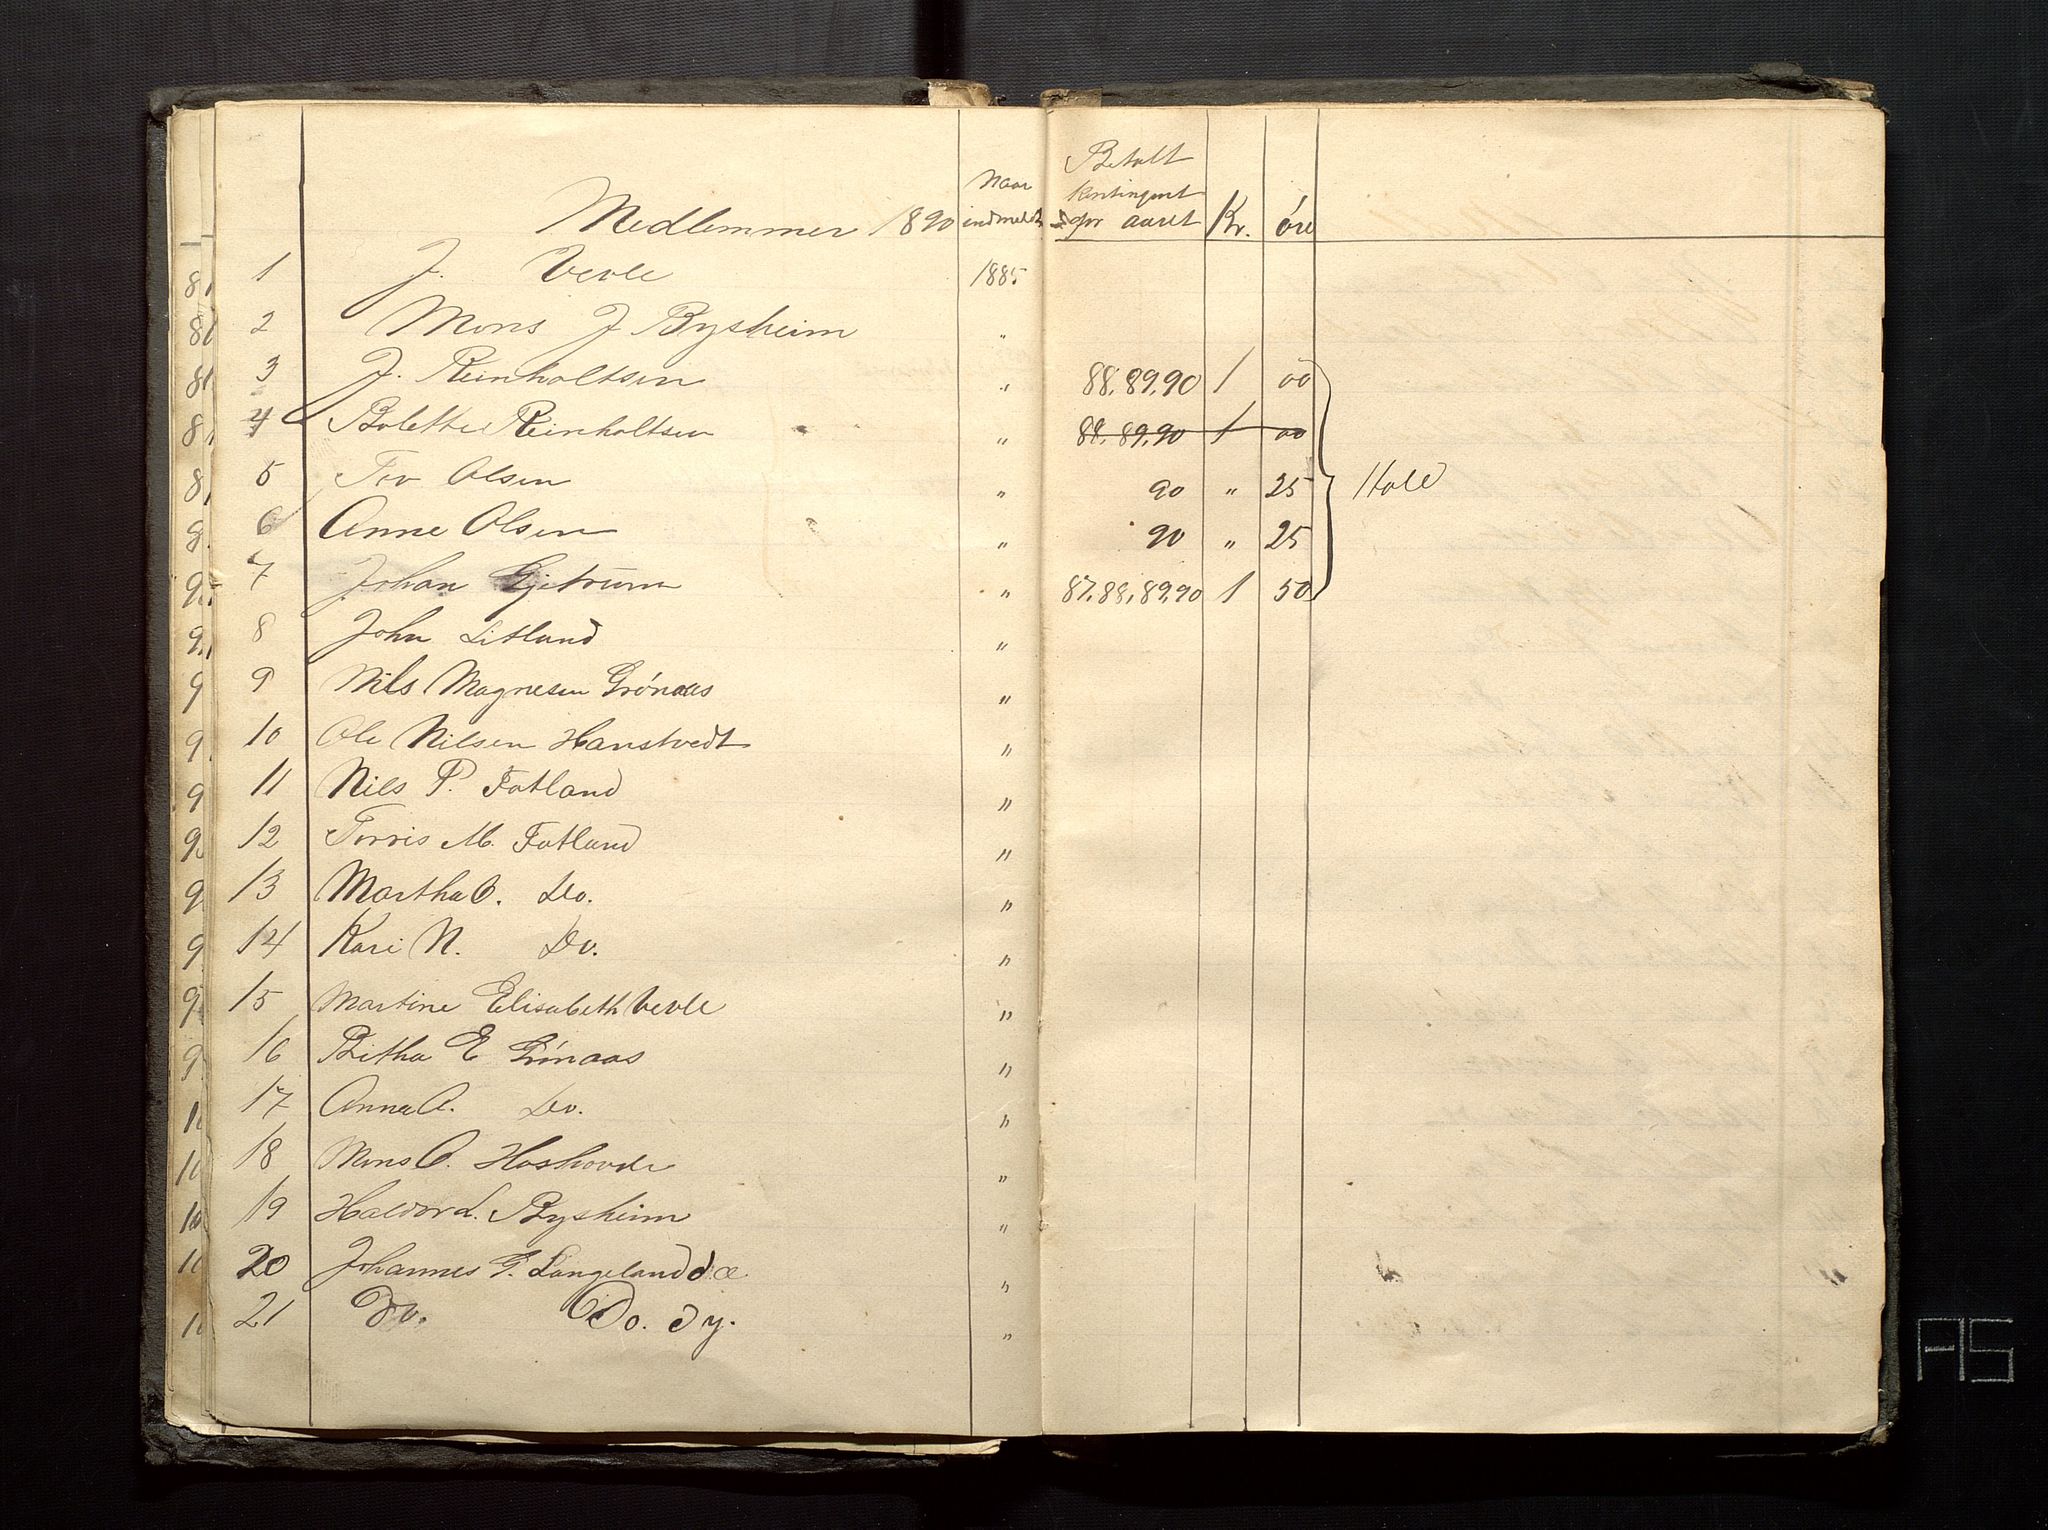 Medlemmer 1890 Naar indmeldt Betalt kontingent for aaret Kr. øre
1 J. Vevle 1885
2 Mons J Bysheim "
3 J. Reinholtsen " 88, 89, 90 1 00
4 Bolette Reinholtsen " 88, 89, 90 1 00
5 Tov Olsen " 90 " 25
6 Anne Olsen " 90 " 25
7 Johan Gjetrum " 87, 88, 89, 90 1 50
8 John Litland "
9 Nils Magnesen Grónaas "
10 Ole Nilsen Hanstvedt "
11 Nils P. Fatland "
12 Torris M. Fatland "
13 Martha O. Do. "
14 Kari N. Do. "
15 Martine Elisabeth Vevle "
16 Britha E Grónaas "
17 Anna A. Do. "
18 Mons O. Hoshovde "
19 Haldor L. Bysheim "
20 Johannes G. Langeland d. æ "
21 Do. Do. d y. "
A5